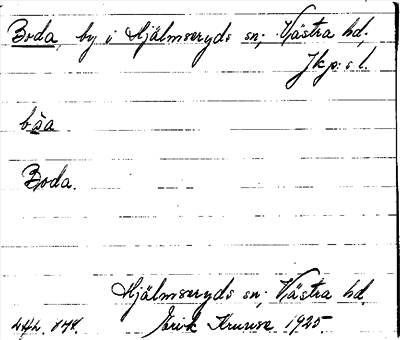 Boda, by i Hjälmseryds sn; Västra hd,
Jkp:s l.
båa
Boda.
Hjälmseryds sn; Västra hd.
Erik Kruuse 1925.